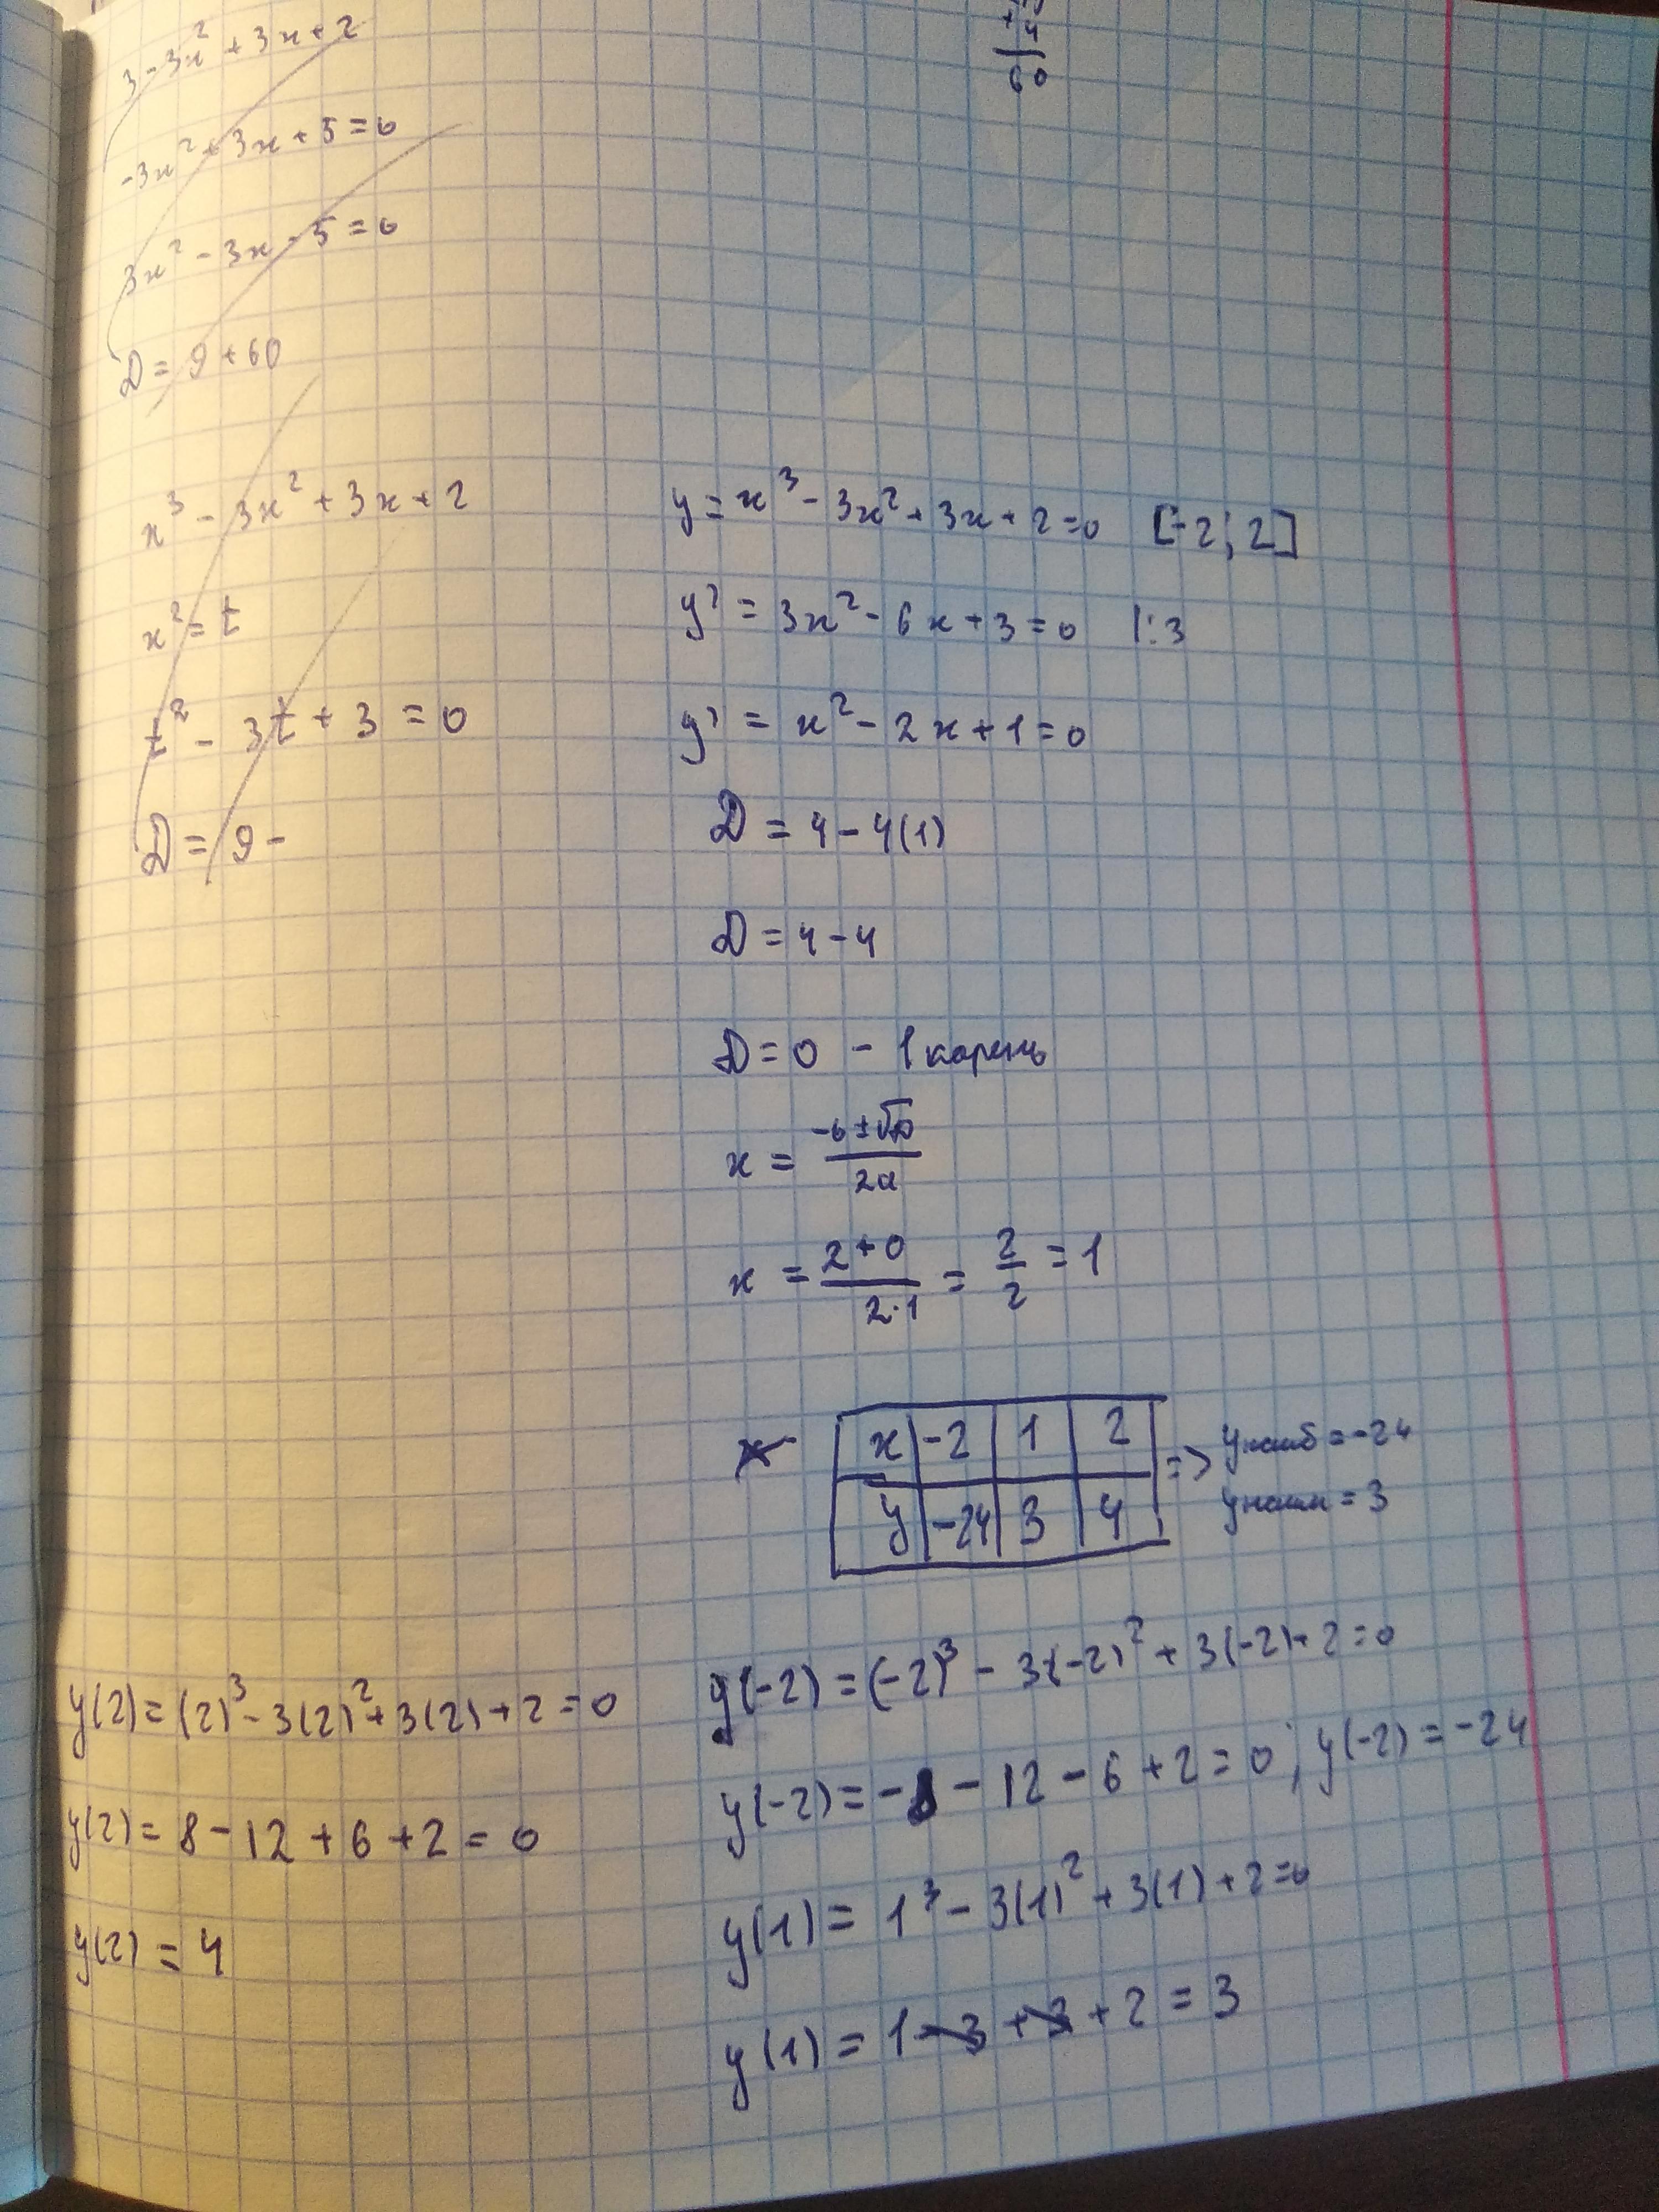 + 4
60
3 - 3x² + 3x + 2
-3x² + 3x + 5 = 0
3x² - 3x - 5 = 0
D = 9 + 60
x³ - 3x² + 3x + 2
x² = t
t² - 3t + 3 = 0
D = 9 -
y = x³ - 3x² + 3x + 2 = 0 [-2; 2]
y' = 3x² - 6x + 3 = 0 |:3
y' = x² - 2x + 1 = 0
D = 4 - 4(1)
D = 4 - 4
D = 0 - 1 корень
x = (-b ± √D)/2a
x = (2 + 0)/(2·1) = 2/2 = 1
x | -2 | 1 | 2 => yнаиб = -24
y | -24 | 3 | 4 yнаим = 3
y(-2) = (-2)³ - 3(-2)² + 3(-2) + 2 = 0
y(-2) = -8 - 12 - 6 + 2 = 0; y(-2) = -24
y(1) = 1³ - 3(1)² + 3(1) + 2 = 0
y(1) = 1 - 3 + 3 + 2 = 3
y(2) = (2)³ - 3(2)² + 3(2) + 2 = 0
y(2) = 8 - 12 + 6 + 2 = 0
y(2) = 4